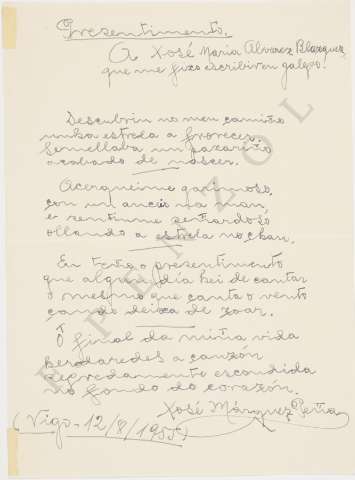 Presentimento.
A Xosé María Alvarez Blazquez,
que me fixo escribir en galego.
Descubrin no meu camiño
unha estrela a frorecer.
Semellaba un paxariño
acabado de nascer.
Acerqueime garimoso,
con un anceio na man,
e sentinme
ollando a estrela no chan.
Eu teño o presentimento
que algun día hei de cantar
o mesmo que canta o vento
cando deixa de zoar.
O final da miña vida
herdaredes a canzón
segredamente escondida
no fondo do corazón.
Xosé Márquez Peña
(Vigo - 12/8/1955)
PENZOL